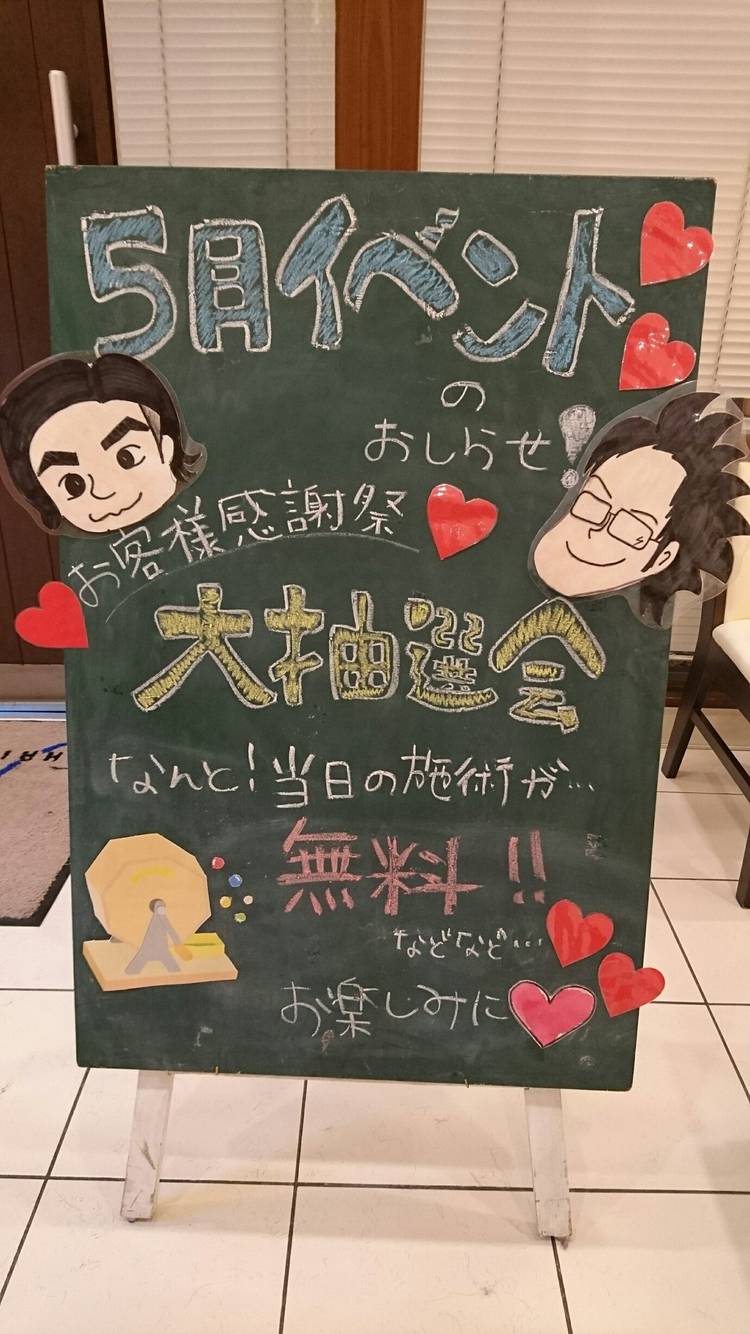 5月イベント
の
おしらせ!
お客様感謝祭
大抽選会
なんと!当日の施術が…
無料!!
などなど…
お楽しみに
HAI